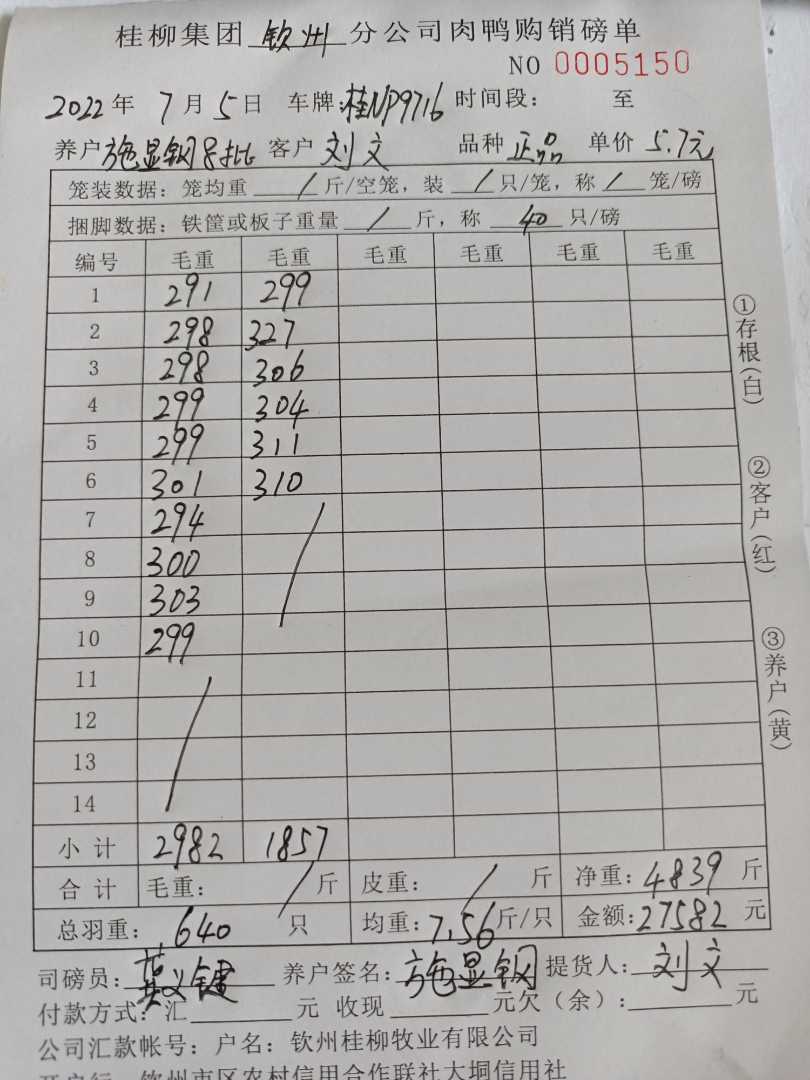 桂柳集团 钦州 分公司肉鸭购销磅单
NO 0005150
2022年 7月5日 车牌:桂NP9716 时间段: 至
养户 施显钢8批 客户 刘文 品种 正品 单价 5.7元
笼装数据: 笼均重 / 斤/空笼, 装 / 只/笼, 称 / 笼/磅
捆脚数据: 铁筐或板子重量 / 斤, 称 40 只/磅
编号 毛重 毛重 毛重 毛重 毛重 毛重
1 291 299
2 298 327
3 298 306
4 299 304
5 299 311
6 301 310
7 294
8 300
9 303
10 299
11
12
13
14
小计 2982 1857
合计 毛重: / 斤 皮重: / 斤 净重: 4839 斤
总羽重: 640 只 均重: 7.56 斤/只 金额: 27582 元
司磅员: 义键 养户签名: 施显钢 提货人: 刘文
付款方式: 汇 元 收现 元欠(余): 元
公司汇款帐号: 户名: 钦州桂柳牧业有限公司
开户行: 钦州市区农村信用合作联社大垌信用社
①存根(白)
②客户(红)
③养户(黄)